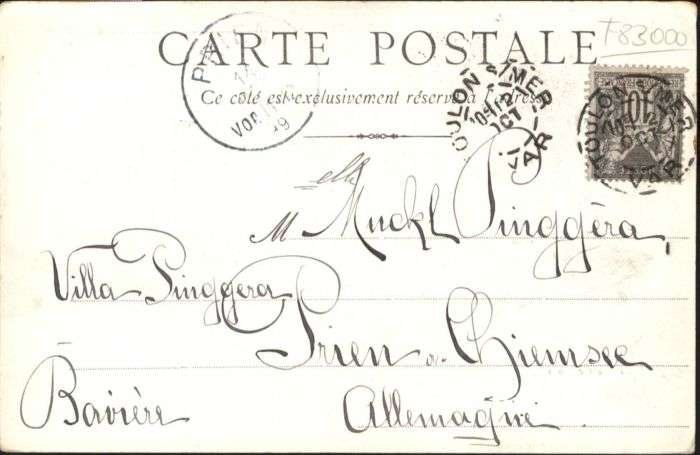 T83000
CARTE POSTALE
Ce côté est exclusivement réservé à l'adresse
TOULON S/MER
OCT
VAR
TOULON S/MER
VAR
VORM
Melle Muckl Pinggéra,
Villa Pinggera
Prien a. Chiemsee
Bavière
Allemagne